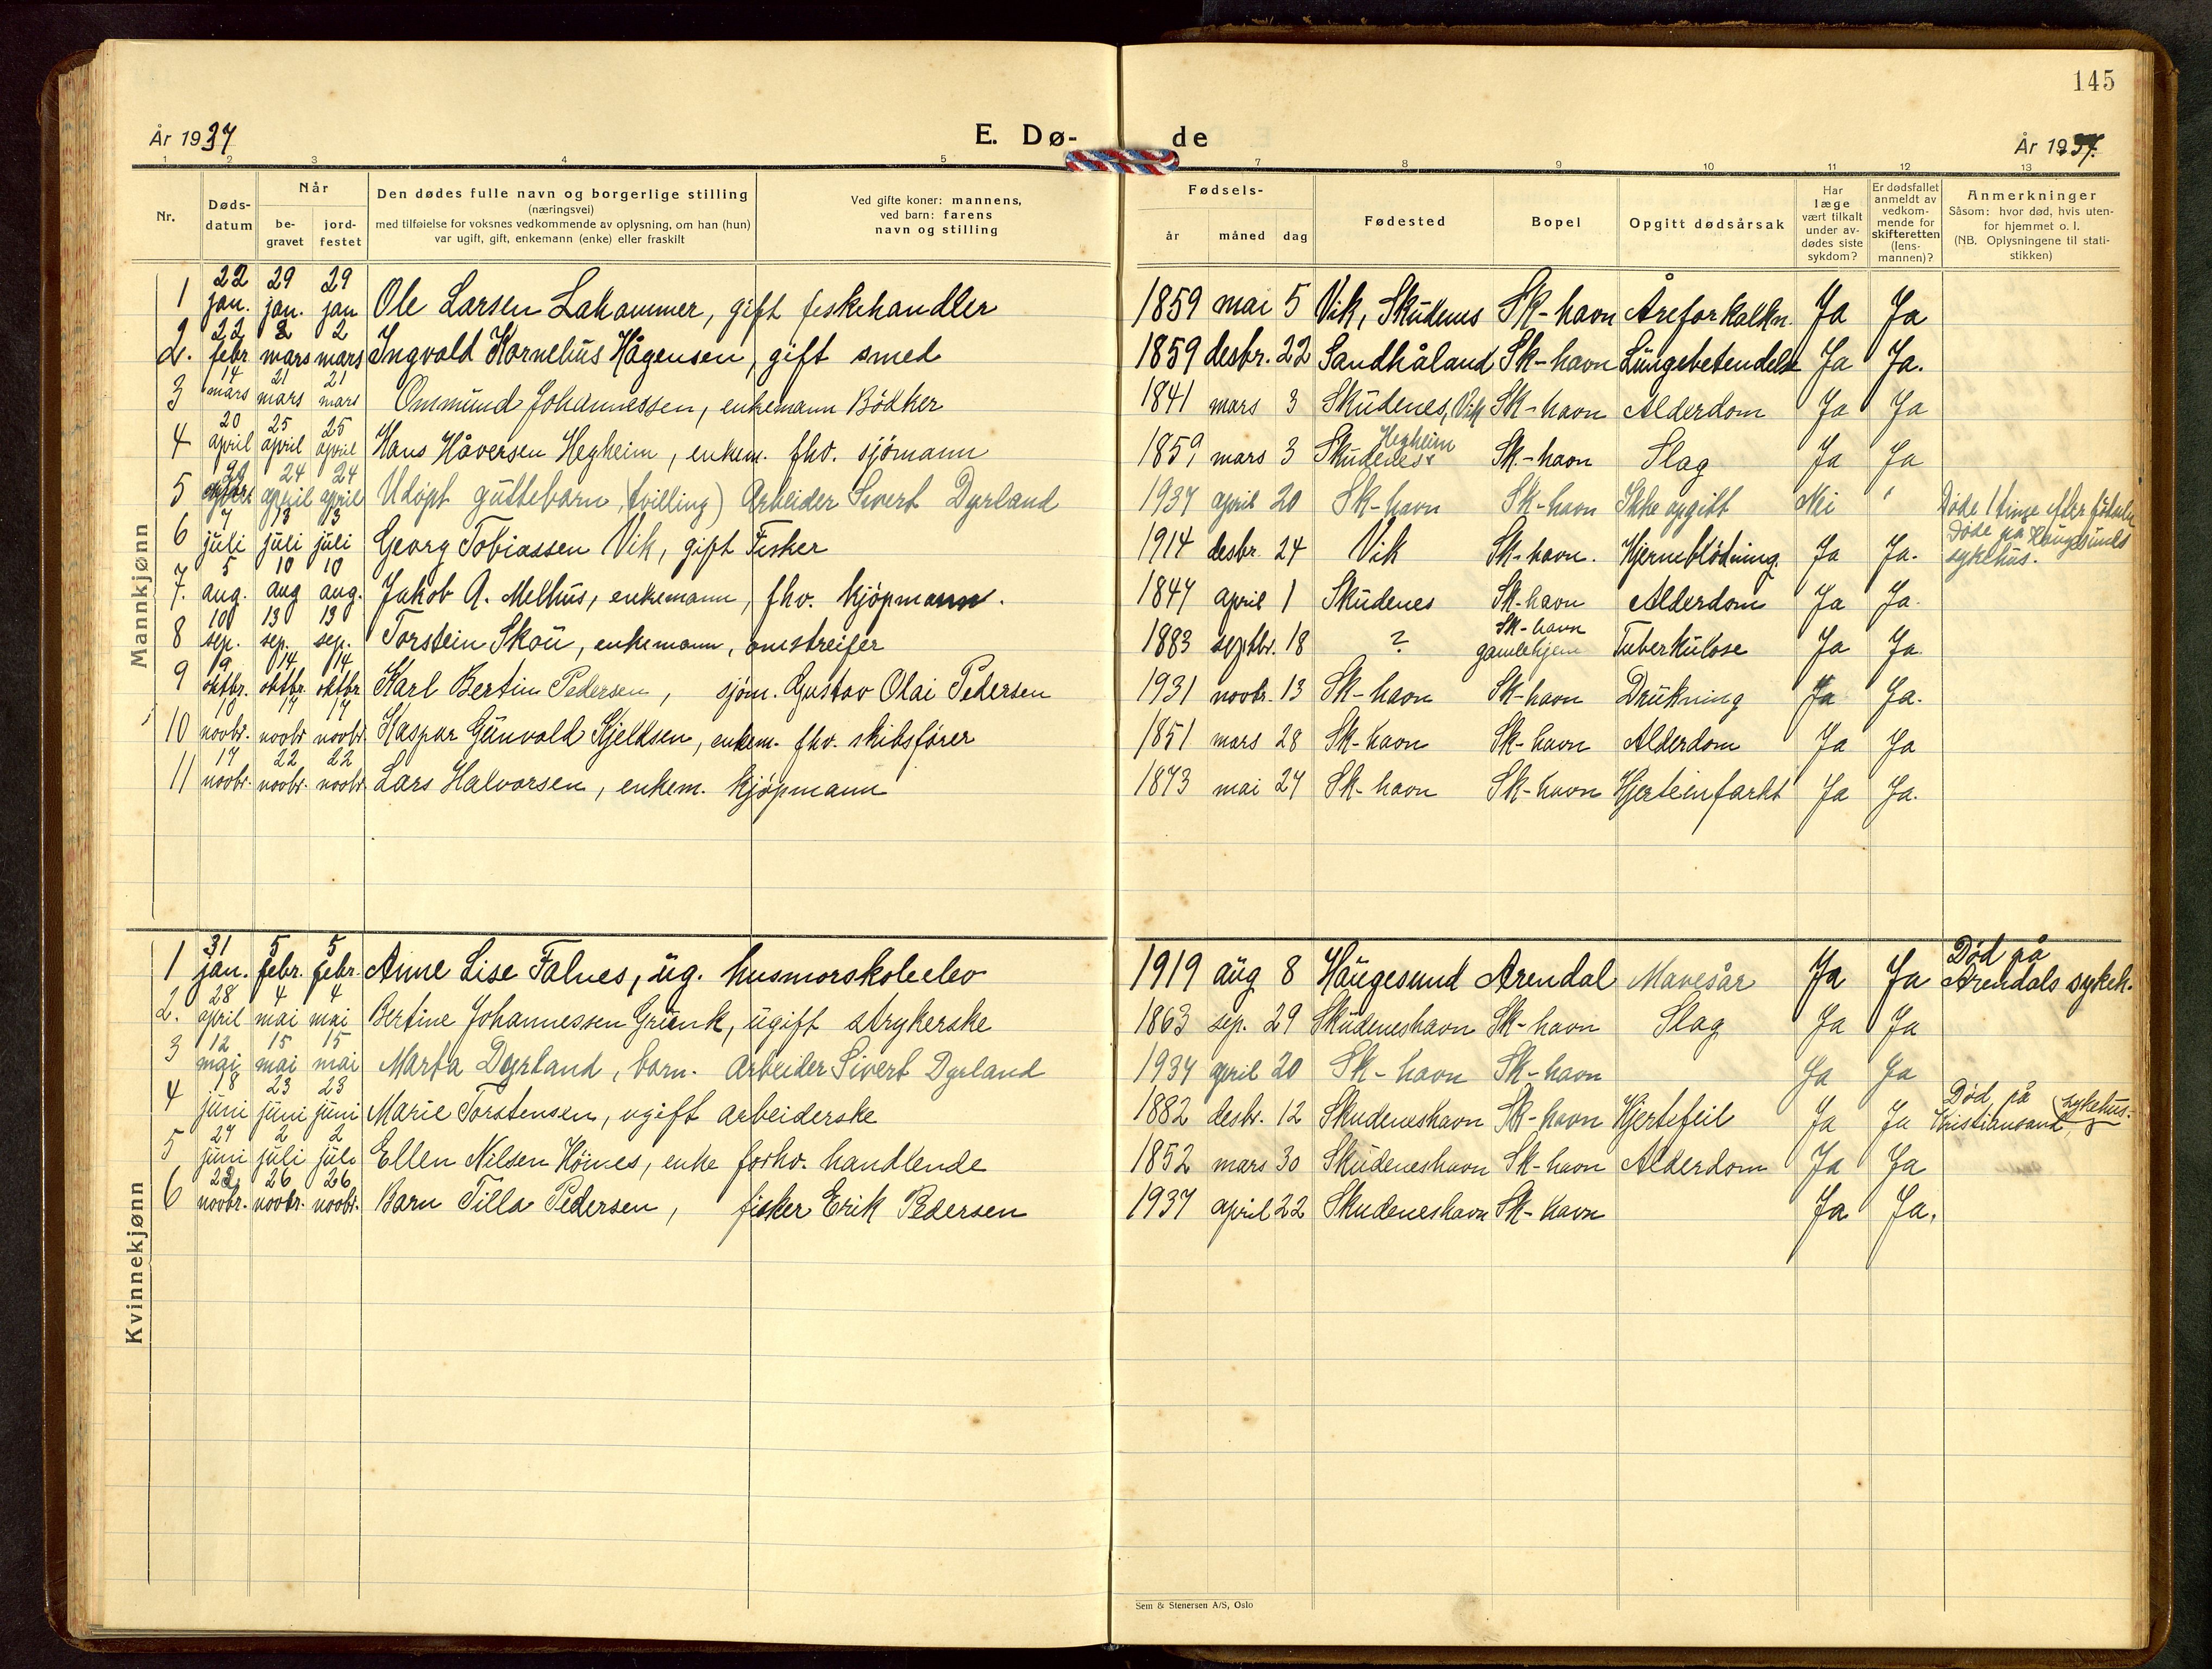 145
År 1937
E. Dø-
de
År 1937.
1 2 3 4 5
7 8 9 10 11 12 13
Nr.
Døds-
datum
Når
be-
gravet
jord-
festet
Den dødes fulle navn og borgerlige stilling
(næringsvei)
med tilføielse for voksnes vedkommende av oplysning, om han (hun)
var ugift, gift, enkemann (enke) eller fraskilt
Ved gifte koner: mannens,
ved barn: farens
navn og stilling
Fødsels-
år måned dag
Fødested
Bopel
Opgitt dødsårsak
Har
læge
vært tilkalt
under av-
dødes siste
sykdom?
Er dødsfallet
anmeldt av
vedkom-
mende for
skifteretten
(lens-
mannen)?
Anmerkninger
Såsom: hvor død, hvis uten-
for hjemmet o. l.
(NB. Oplysningene til stati-
stikken)
Mannkjønn
1 22 jan. 29 jan. 29 jan Ole Larsen Lahammer, gift fiskehandler 1859 mai 5 Vik, Skudenes Sk-havn Åreforkalkn. Ja Ja
2. 22 febr 2 mars 2 mars Ingvald Kornelius Hågensen, gift smed 1859 desbr. 22 Sandhåland Sk-havn Lungebetendelse Ja Ja.
3 14 mars 21 mars 21 mars Ommund Johannessen, enkemann Bödker 1841 mars 3 Skudenes, Vik Sk-havn Alderdom Ja Ja
4 20 april 25 april 25 april Hans Håversen Hegheim, enkem. fhv. sjömann 1859 mars 3 Hegheim Skudenes Sk.-havn Slag Ja Ja
5 24 april 24 april Udöpt guttebarn (tvilling) Arbeider Sivert Dyrland 1937 april 20 Sk-havn Sk-havn Ikke opgitt Nei Döde 1 time efter
6 7 juli 13 juli 13 juli Georg Tobiassen Vik, gift Fisker 1914 desbr. 24 Vik Sk-havn. Hjerneblödning. Ja Ja. Döde på Haugesunds sykehus.
7. 5 aug. 10 aug 10 aug. Jakob A. Melhus, enkemann, fhv. kjöpmann. 1847 april 1 Skudenes Sk-havn Alderdom Ja Ja.
8 10 sep. 13 sep. 13 sep. Torstein Skou, enkemann, omstreifer 1883 septbr. 18 ? Sk-havn gamlehjem Tuberkulose Ja Ja.
9 9 oktbr. 14 oktbr. 14 oktbr Karl Bertin Pedersen, sjöm. Gustav Olai Pedersen 1931 novbr. 13 Sk-havn Sk-havn Drukning Ja Ja.
10 novbr. 17 novbr 17 novbr Kaspar Gunvald Kjeldsen, enkem. fhv. skibsförer 1851 mars 28 Sk-havn Sk-havn Alderdom Ja Ja
11 17 novbr. 22 novbr. 22 novbr. Lars Halvorsen, enkem. kjöpmann 1873 mai 27 Sk-havn Sk-havn Hjerteinfarkt Ja Ja.
Kvinnekjønn
1 31 jan. 5 febr. 5 febr. Anne Lise Falnes, ug. husmorskoleelev 1919 aug 8 Haugesund Arendal Mavesår Ja Ja Död på Arendals sykeh.
2. 28 april 4 mai 4 mai Bertine Johannessen Grünk, ugift strykerske 1863 sep. 29 Skudeneshavn Sk-havn Slag Ja Ja
3 12 mai 15 mai 15 mai Marta Dyrland, barn. Arbeider Sivert Dyrland 1937 april 20 Sk-havn Sk-havn Ja Ja
4 18 juni 23 juni 23 juni Marie Torstensen, ugift arbeiderske 1882 desbr. 12 Skudeneshavn Sk-havn Hjertefeil Ja Ja Död på Kristiansand sykehus.
5 27 juni 2 juli 2 juli Ellen Nilsen Höines, enke forhv. handlende 1852 mars 30 Skudeneshavn Sk-havn Alderdom Ja Ja
6 22 novbr. 26 novbr. 26 novbr. Barn Tilla Pedersen, fisker Erik Pedersen 1937 april 22 Skudeneshavn Sk-havn Ja Ja.
Sem & Stenersen A/S, Oslo